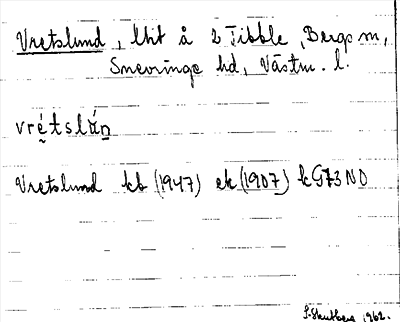 Vretslund, lht å 2 Tibble, Bergs m,
Snevringe hd, Västm. l.
vrétslún
Vretslund kb (1947) ek (1907) k G73 NO
1962.